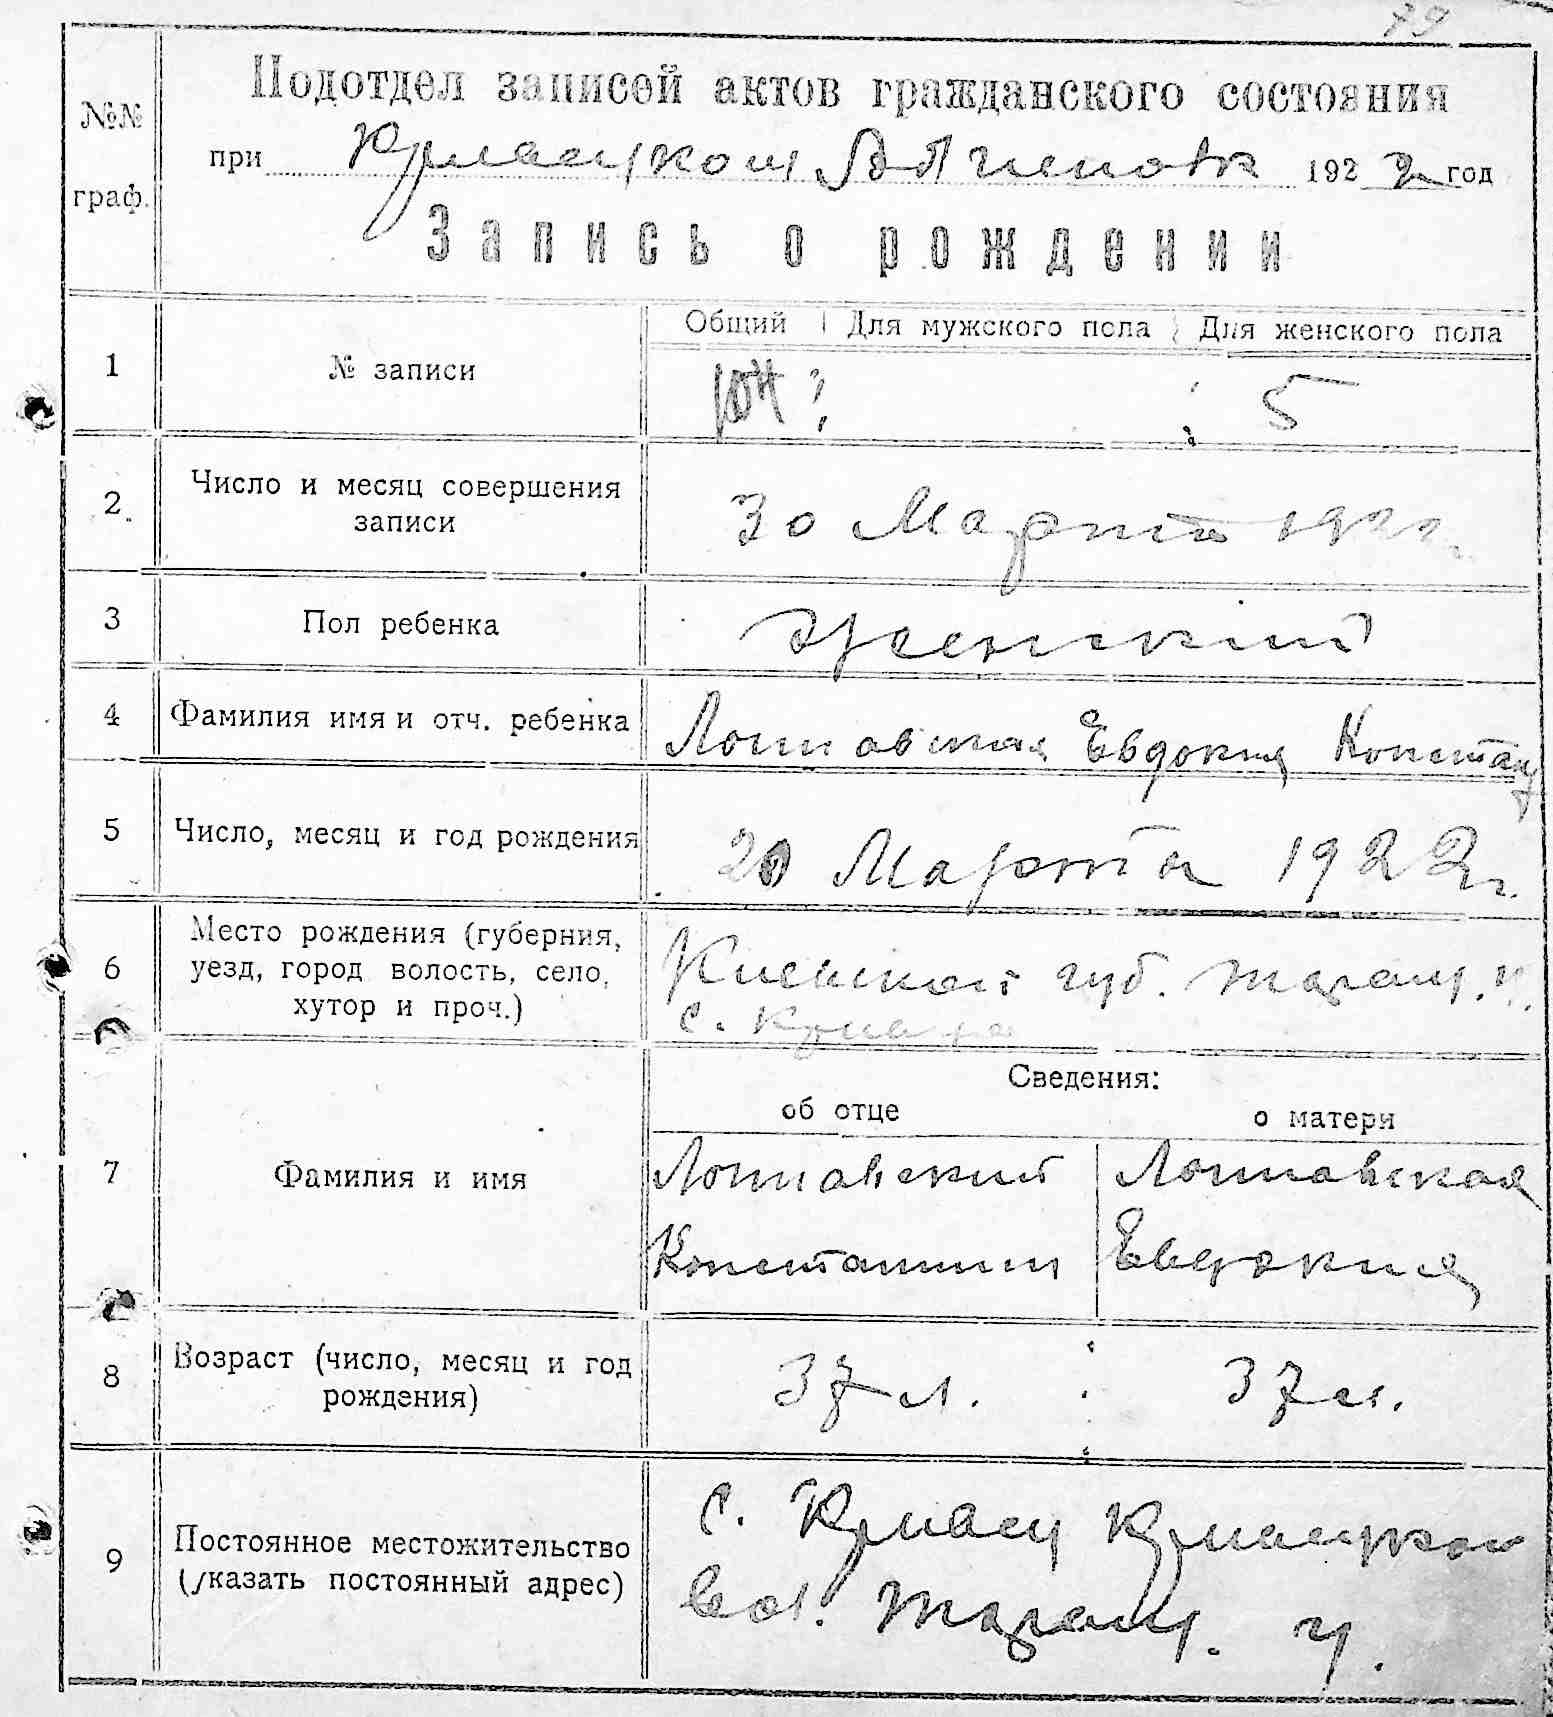 79
№№ граф.
Подотдел записей актов гражданского состояния
при 1922 год
Запись о рождении
Общий Для мужского пола Для женского пола
1 № записи 5
2 Число и месяц совершения записи 30 Марта 1922 г.
3 Пол ребенка Женский
4 Фамилия имя и отч. ребенка Евдокия Констан
5 Число, месяц и год рождения 20 Марта 1922 г.
6 Место рождения (губерния, уезд, город волость, село, хутор и проч.) Киевской губ. Таращ. у.
с.
Сведения:
об отце о матери
7 Фамилия и имя
Константин Евдокия
8 Возраст (число, месяц и год рождения) 37 л. 37 л.
9 Постоянное местожительство (указать постоянный адрес) с.
вол. Таращ. у.